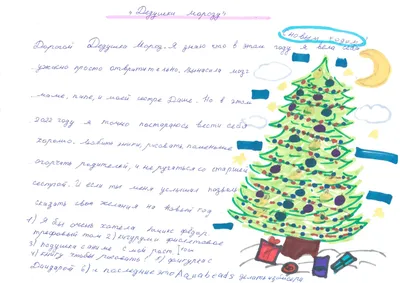 "Дедушки морозу"
новым годом
Дорогой Дедушка Мороз. Я знаю что в этом году я вела себя
ужасно просто отвратительно, выносила мозг
маме, папе, и моей сестре Даше. Но в этом
2022 году я точно постараюсь вести себя
хорошо. Читать книги, рисовать поменьше
огорчать родителей, и не ругаться со старшей
сестрой. И если ты меня услышал позволь
сказать свои желания на новый год
1) Я бы очень хотела комикс фёдор
трефовый том 2) кигуруми фиолетовое
3) подушки с аниме с мой рост
4) книгу чтобы рисовать 5) фингерсы
Даидара 6) и последнее это Aquabeads